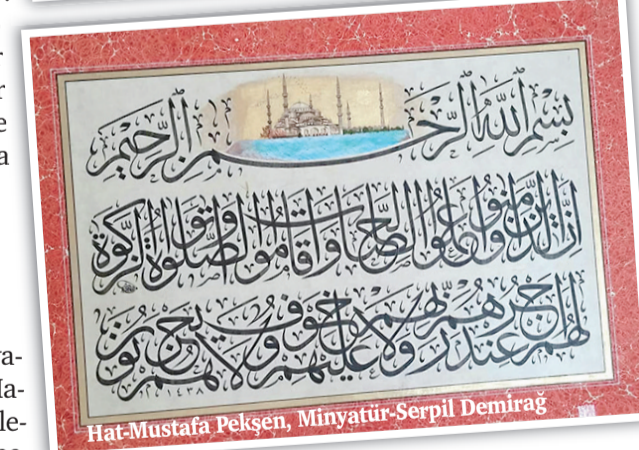 بِسْمِ اللهِ الرَّحْمٰنِ الرَّحِيمِ
إِنَّ الَّذِينَ آمَنُوا وَعَمِلُوا الصَّالِحَاتِ وَأَقَامُوا الصَّلٰوةَ وَآتَوُا الزَّكٰوةَ
لَهُمْ أَجْرُهُمْ عِنْدَ رَبِّهِمْ وَلَا خَوْفٌ عَلَيْهِمْ وَلَا هُمْ يَحْزَنُونَ
١٤٣٨
Hat-Mustafa Pekşen, Minyatür-Serpil Demirağ